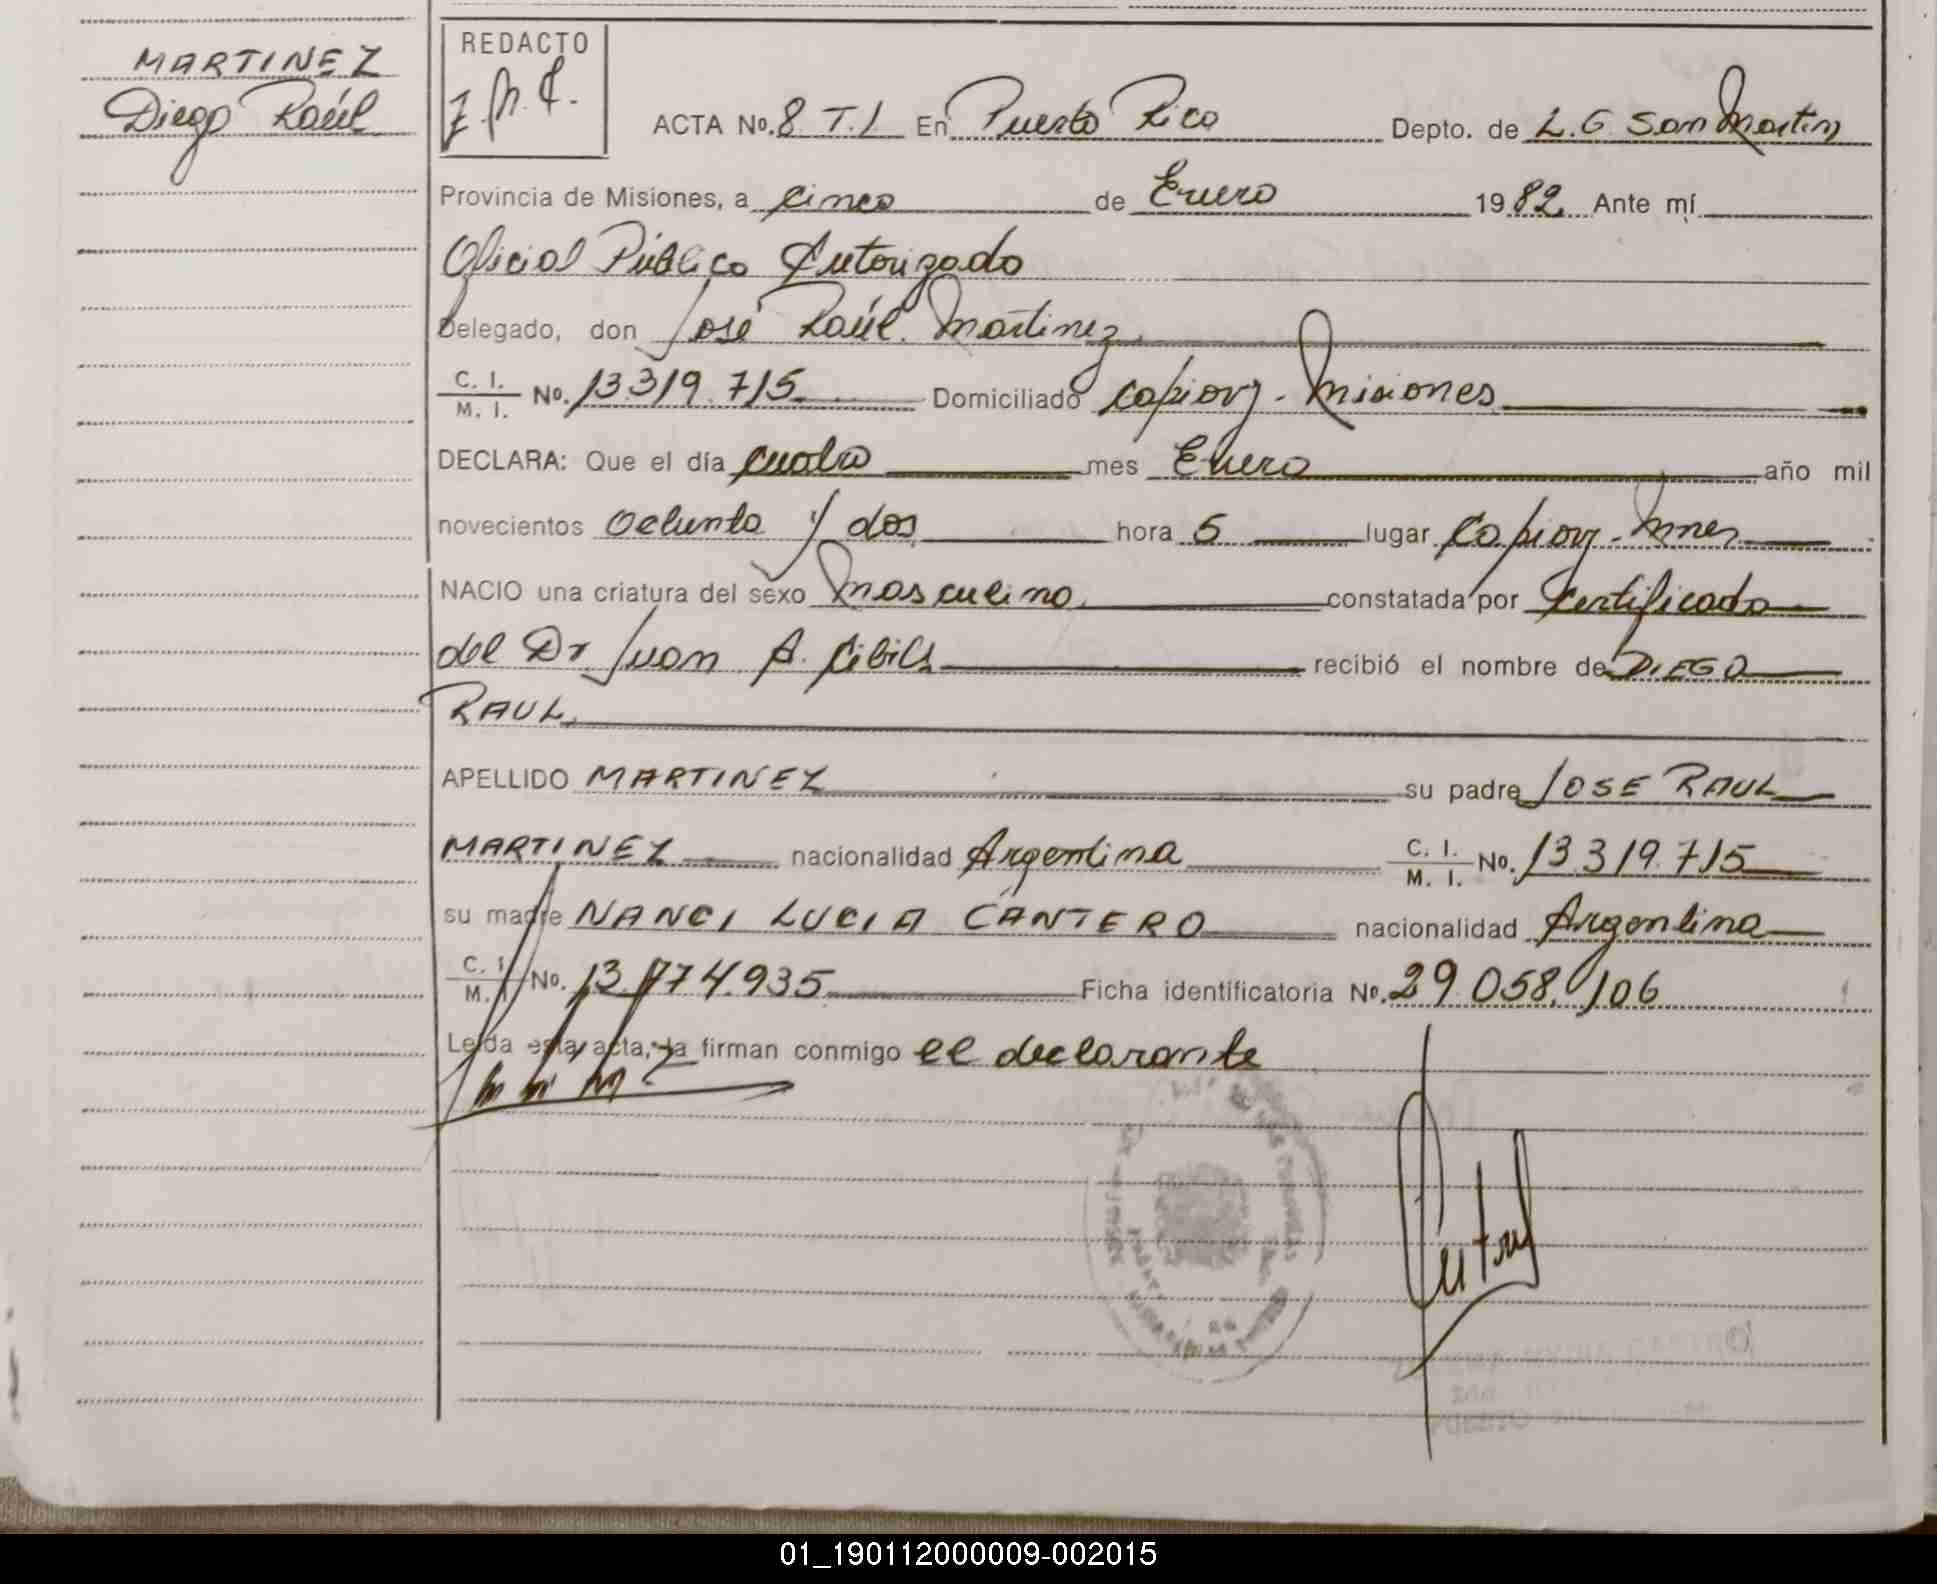 MARTINEZ
Diego Raúl
REDACTO
ACTA No. 8 T. I En Puerto Rico Depto. de L. G. San Martin
Provincia de Misiones, a cinco de Enero 1982 Ante mí
Oficial Público Autorizado
Delegado, don José Raúl Martinez
C. I.
M. I. No. 13.319.715 Domiciliado Capiovy - Misiones
DECLARA: Que el día cuatro mes Enero año mil
novecientos Ochenta y dos hora 5 lugar Capiovy - Mnes
NACIO una criatura del sexo masculino constatada por Certificado
del Dr Juan A. Cibils recibió el nombre de DIEGO
RAUL
APELLIDO MARTINEZ su padre JOSE RAUL
MARTINEZ nacionalidad Argentina C. I.
M. I. No. 13.319.715
su madre NANCI LUCIA CANTERO nacionalidad Argentina
C. I.
M. I. No. 13.774.935 Ficha identificatoria No. 29.058.106
Leída esta acta, la firman conmigo el declarante
01_190112000009-002015